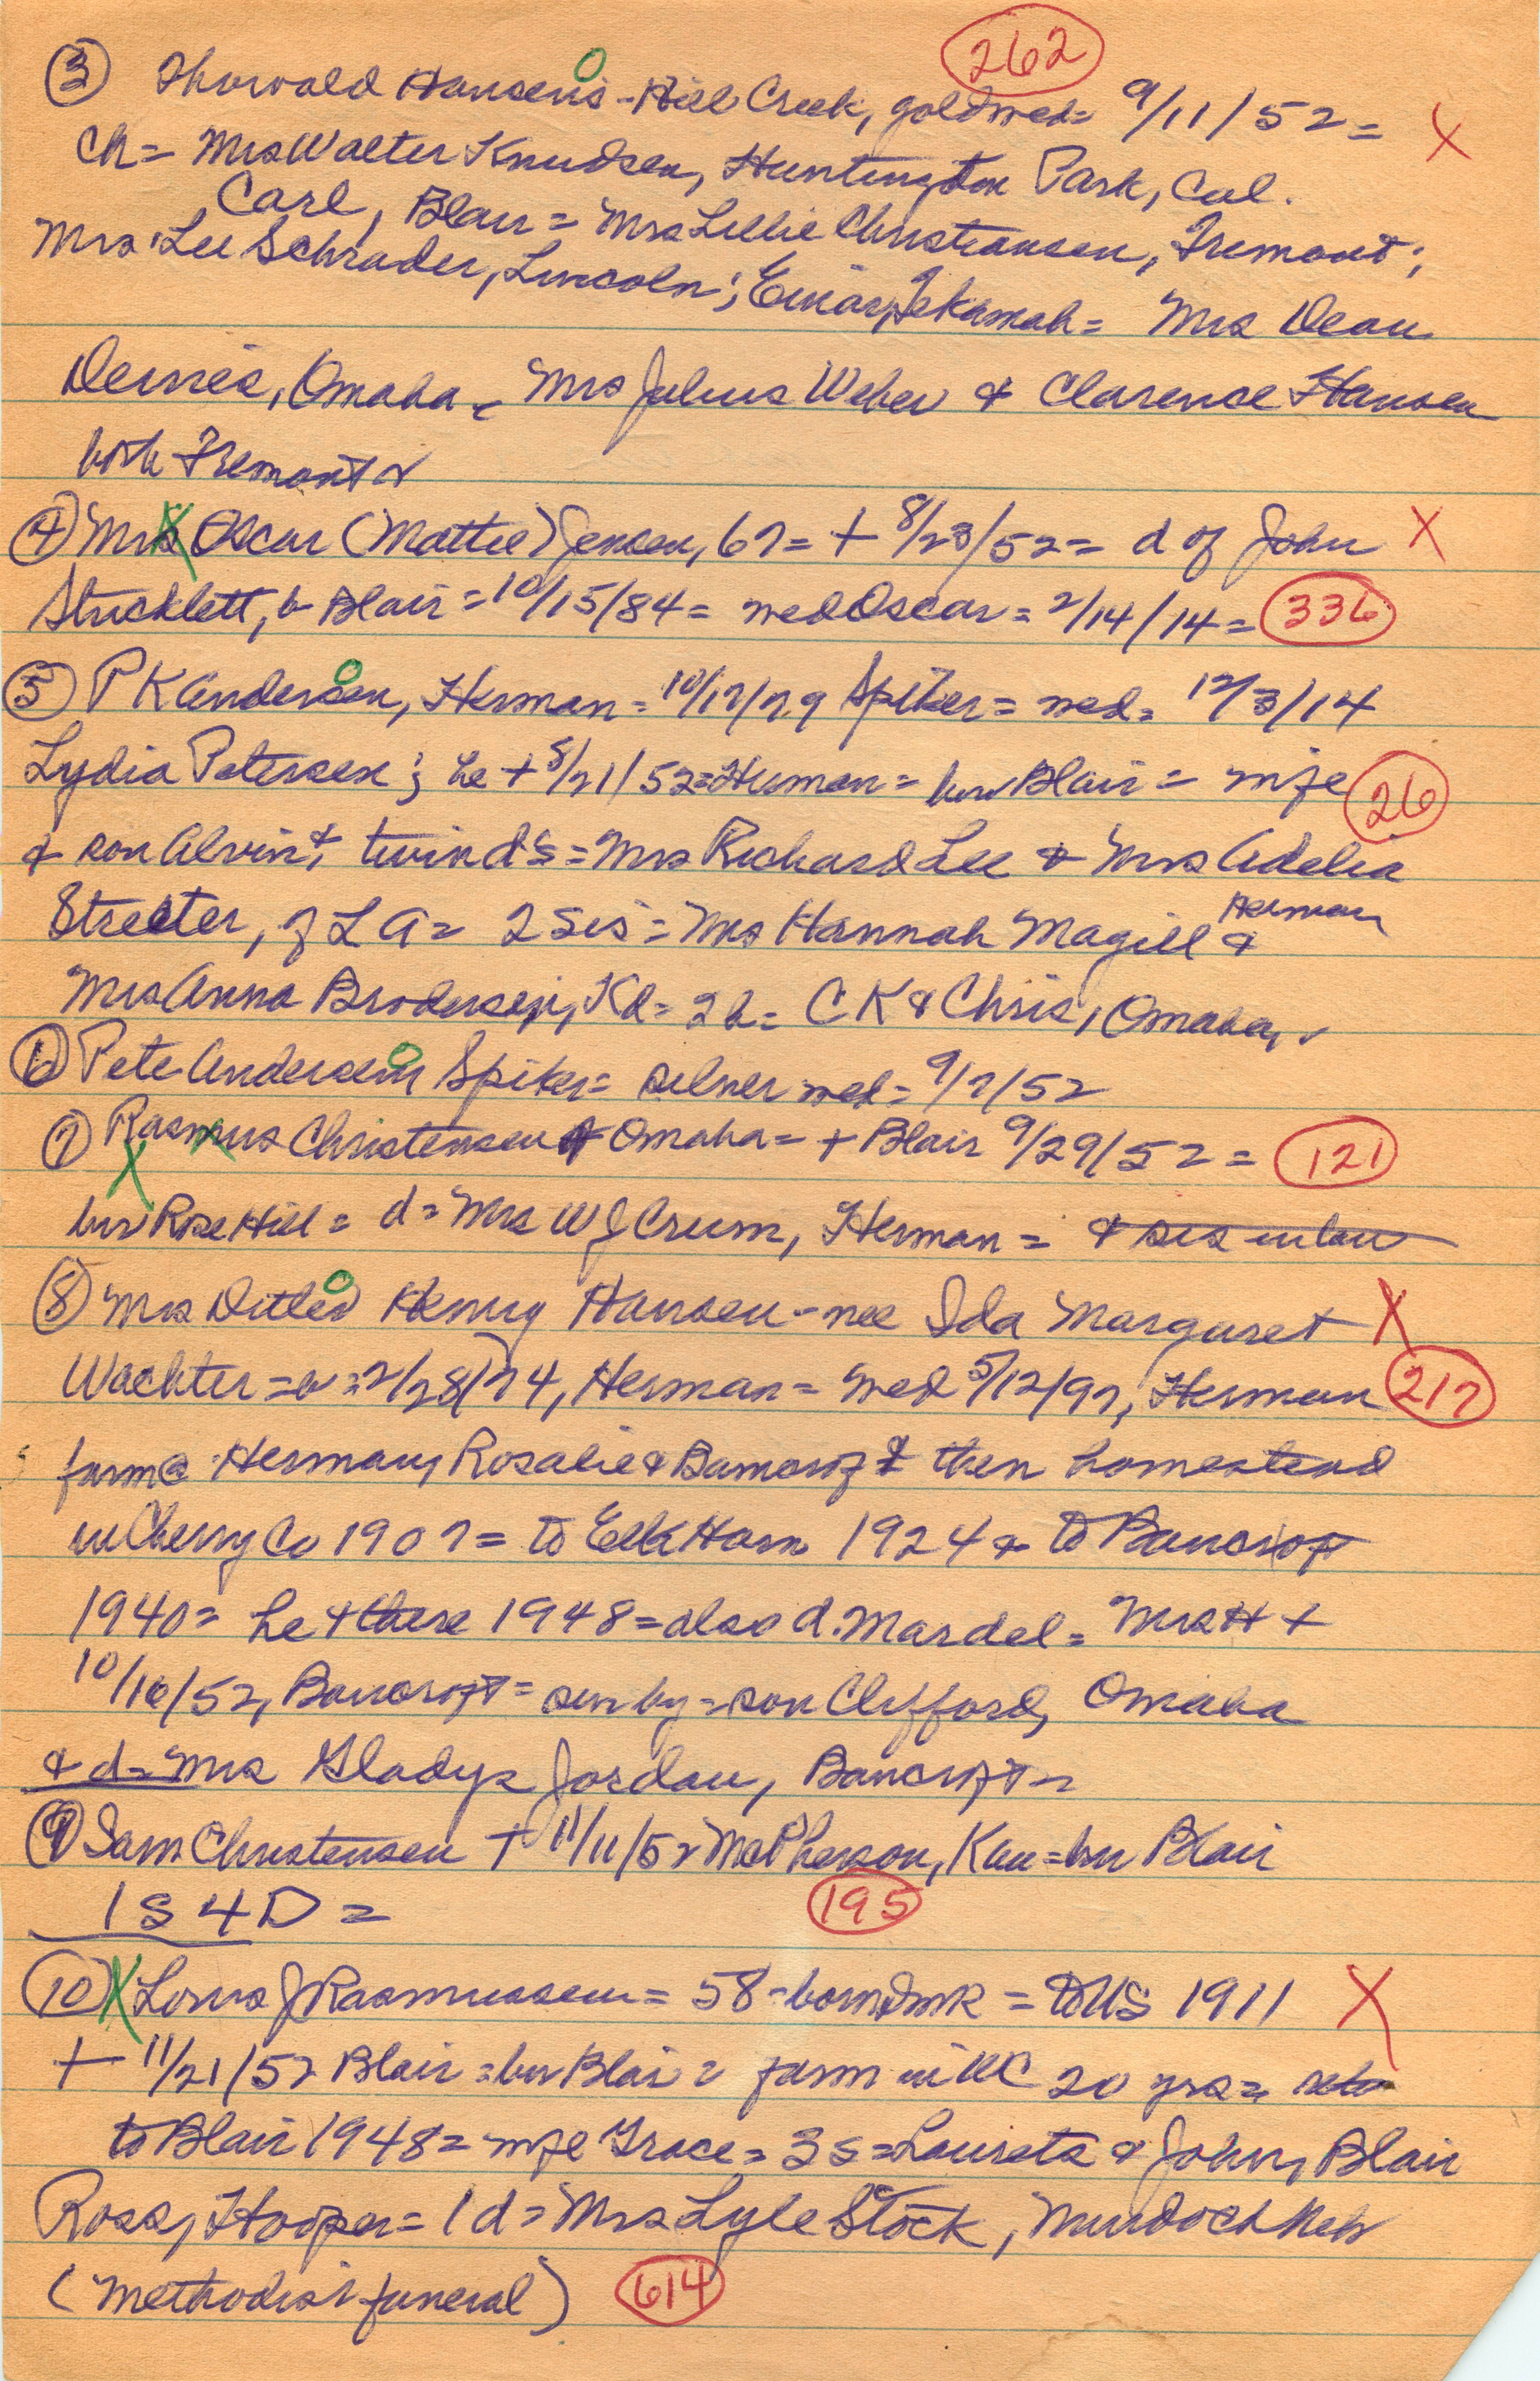 262
③ Thorvald Hansens - Hill Creek, gold wed = 9/11/52 = X
Ch = Mrs Walter Knudsen, Huntington Park, Cal.
Carl, Blair = Mrs Lillie Christiansen, Fremont;
Mrs Lee Schrader, Lincoln; Einar, Tekamah = Mrs Dean
Omaha = Mrs Julius Weber & Clarence Hansen
both Fremont
④ Mrs Oscar (Mattie) Jensen, 67 = + 8/23/52 = d of John X
Stricklett, b Blair = 10/15/84 = wed Oscar = 2/14/14 = 336
⑤ P K Andersen, Herman = 10/17/79 Spiker = wed = 12/3/14
Lydia Petersen; he + 8/21/52 = Herman = bur Blair = wife 26
& son Alvin & twin d's = Mrs Richard Lee & Mrs Adelia
Streeter, of L A = 2 sis = Mrs Hannah Magill Herman &
Mrs Anna Brodersen, Kd = 2 b = C K & Chris, Omaha,
⑥ Pete Andersen Spiker = silver wed = 9/7/52
⑦ Rasmus Christensen Omaha = + Blair 9/29/52 = 121
bur Rose Hill = d = Mrs W J Crum, Herman = & sis in law
⑧ Mrs Ditlev Henry Hansen - nee Ida Margaret X
Wachter = b = 2/28/74, Herman = wed 5/12/97, Herman 217
farm @ Herman, Rosalie & Bancroft & then homestead
in Cherry Co 1907 = to Elk Horn 1924 & to Bancroft
1940 = he + there 1948 = also d. Mardel = Mrs H +
10/16/52, Bancroft = sur by = son Clifford, Omaha
& d = Mrs Gladys Jordan, Bancroft =
⑨ Sam Christensen + 11/11/52 McPherson, Kan = bur Blair
1 S 4 D = 195
⑩ X Louis J Rasmussen = 58 - born Dmk = to US 1911 X
+ 11/21/52 Blair = bur Blair = farm in WC 20 yrs =
to Blair 1948 = wife Grace = 3 s = Laurets & John, Blair
Ross, Hooper = 1 d = Mrs Lyle Stock, Murdock Neb
(Methodist funeral) 614